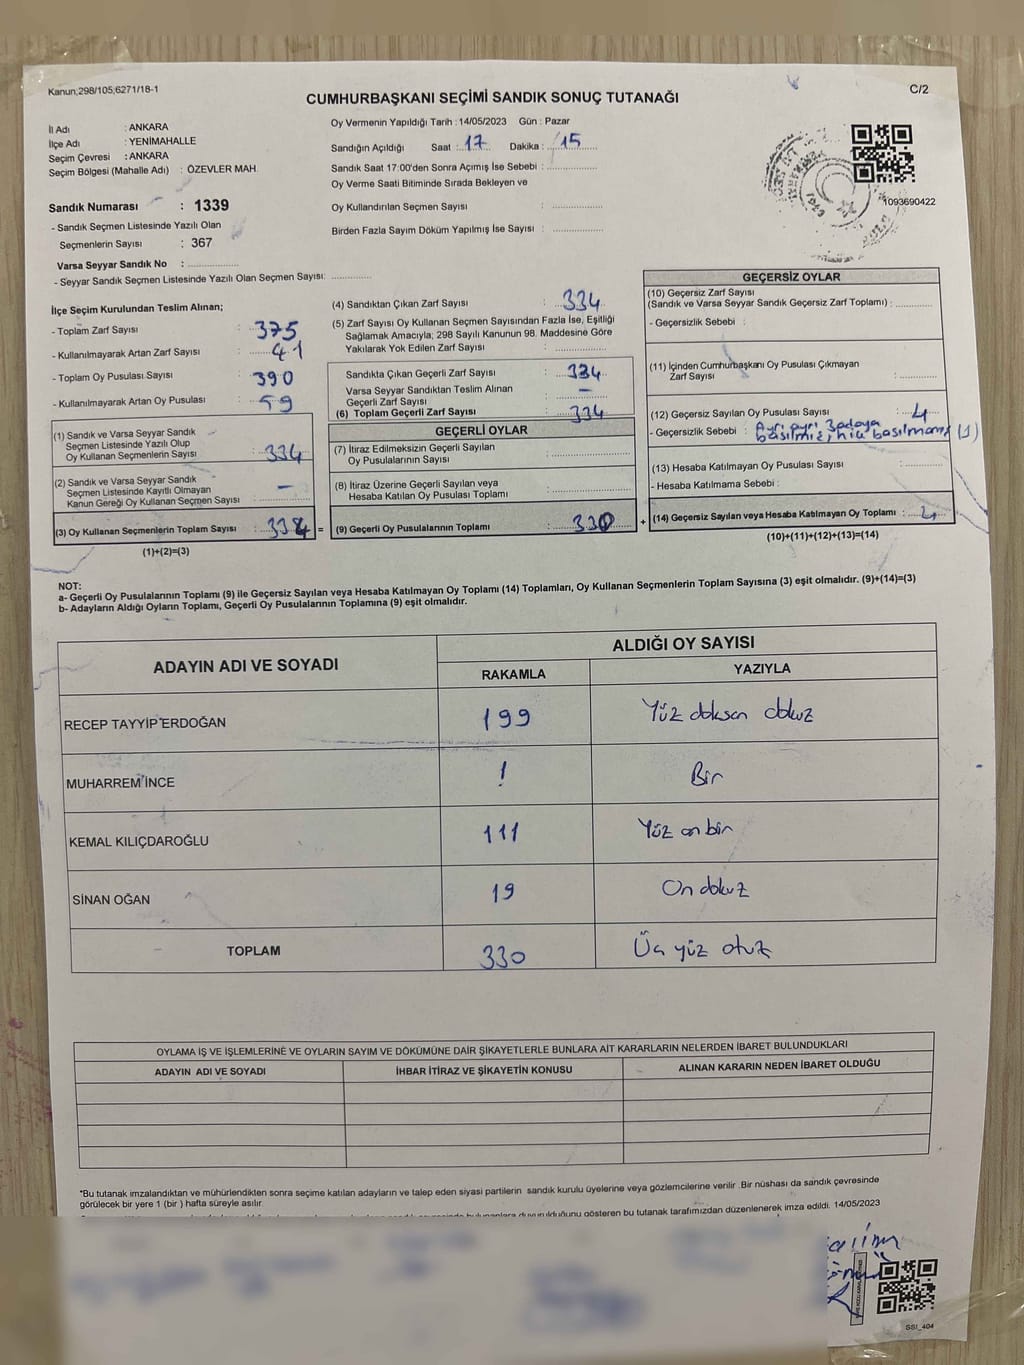 Kanun;298/105;6271/18-1
C/2
CUMHURBAŞKANI SEÇİMİ SANDIK SONUÇ TUTANAĞI
İl Adı : ANKARA
İlçe Adı : YENİMAHALLE
Seçim Çevresi : ANKARA
Seçim Bölgesi (Mahalle Adı) : ÖZEVLER MAH.
Sandık Numarası : 1339
- Sandık Seçmen Listesinde Yazılı Olan
Seçmenlerin Sayısı : 367
Varsa Seyyar Sandık No : ............
- Seyyar Sandık Seçmen Listesinde Yazılı Olan Seçmen Sayısı: ............
Oy Vermenin Yapıldığı Tarih : 14/05/2023 Gün : Pazar
Sandığın Açıldığı Saat : 17 Dakika : 15
Sandık Saat 17:00'den Sonra Açımış İse Sebebi : ............
Oy Verme Saati Bitiminde Sırada Bekleyen ve
Oy Kullandırılan Seçmen Sayısı : ............
Birden Fazla Sayım Döküm Yapılmış İse Sayısı : ............
1093690422
İlçe Seçim Kurulundan Teslim Alınan;
- Toplam Zarf Sayısı : 375
- Kullanılmayarak Artan Zarf Sayısı : 41
- Toplam Oy Pusulası Sayısı : 390
- Kullanılmayarak Artan Oy Pusulası : 59
(1) Sandık ve Varsa Seyyar Sandık
Seçmen Listesinde Yazılı Olup
Oy Kullanan Seçmenlerin Sayısı : 334
(2) Sandık ve Varsa Seyyar Sandık
Seçmen Listesinde Kayıtlı Olmayan
Kanun Gereği Oy Kullanan Seçmen Sayısı : -
(3) Oy Kullanan Seçmenlerin Toplam Sayısı : 334 =
(1)+(2)=(3)
(4) Sandıktan Çıkan Zarf Sayısı : 334
(5) Zarf Sayısı Oy Kullanan Seçmen Sayısından Fazla İse, Eşitliği
Sağlamak Amacıyla; 298 Sayılı Kanunun 98. Maddesine Göre
Yakılarak Yok Edilen Zarf Sayısı : ............
Sandıkta Çıkan Geçerli Zarf Sayısı : 334
Varsa Seyyar Sandıktan Teslim Alınan
Geçerli Zarf Sayısı : -
(6) Toplam Geçerli Zarf Sayısı : 334
GEÇERLİ OYLAR
(7) İtiraz Edilmeksizin Geçerli Sayılan
Oy Pusulalarının Sayısı : ............
(8) İtiraz Üzerine Geçerli Sayılan veya
Hesaba Katılan Oy Pusulası Toplamı : ............
(9) Geçerli Oy Pusulalarının Toplamı : 330 +
GEÇERSİZ OYLAR
(10) Geçersiz Zarf Sayısı
(Sandık ve Varsa Seyyar Sandık Geçersiz Zarf Toplamı) : ............
- Geçersizlik Sebebi :
(11) İçinden Cumhurbaşkanı Oy Pusulası Çıkmayan
Zarf Sayısı : ............
(12) Geçersiz Sayılan Oy Pusulası Sayısı : 4
- Geçersizlik Sebebi : Ayrı ayrı 3 adaya
basılmış, hiç basılmamış (1)
(13) Hesaba Katılmayan Oy Pusulası Sayısı : ............
- Hesaba Katılmama Sebebi :
(14) Geçersiz Sayılan veya Hesaba Katılmayan Oy Toplamı : 4
(10)+(11)+(12)+(13)=(14)
NOT:
a- Geçerli Oy Pusulalarının Toplamı (9) ile Geçersiz Sayılan veya Hesaba Katılmayan Oy Toplamı (14) Toplamları, Oy Kullanan Seçmenlerin Toplam Sayısına (3) eşit olmalıdır. (9)+(14)=(3)
b- Adayların Aldığı Oyların Toplamı, Geçerli Oy Pusulalarının Toplamına (9) eşit olmalıdır.
ADAYIN ADI VE SOYADI
ALDIĞI OY SAYISI
RAKAMLA YAZIYLA
RECEP TAYYİP ERDOĞAN 199 Yüz doksan dokuz
MUHARREM İNCE 1 Bir
KEMAL KILIÇDAROĞLU 111 Yüz on bir
SİNAN OĞAN 19 On dokuz
TOPLAM 330 Üç yüz otuz
OYLAMA İŞ VE İŞLEMLERİNE VE OYLARIN SAYIM VE DÖKÜMÜNE DAİR ŞİKAYETLERLE BUNLARA AİT KARARLARIN NELERDEN İBARET BULUNDUKLARI
ADAYIN ADI VE SOYADI İHBAR İTİRAZ VE ŞİKAYETİN KONUSU ALINAN KARARIN NEDEN İBARET OLDUĞU
*Bu tutanak imzalandıktan ve mühürlendikten sonra seçime katılan adayların ve talep eden siyasi partilerin sandık kurulu üyelerine veya gözlemcilerine verilir .Bir nüshası da sandık çevresinde
görülecek bir yere 1 (bir ) hafta süreyle asılır.
bulunanlara duyurulduğunu gösteren bu tutanak tarafımızdan düzenlenerek imza edildi. 14/05/2023
SSI_404